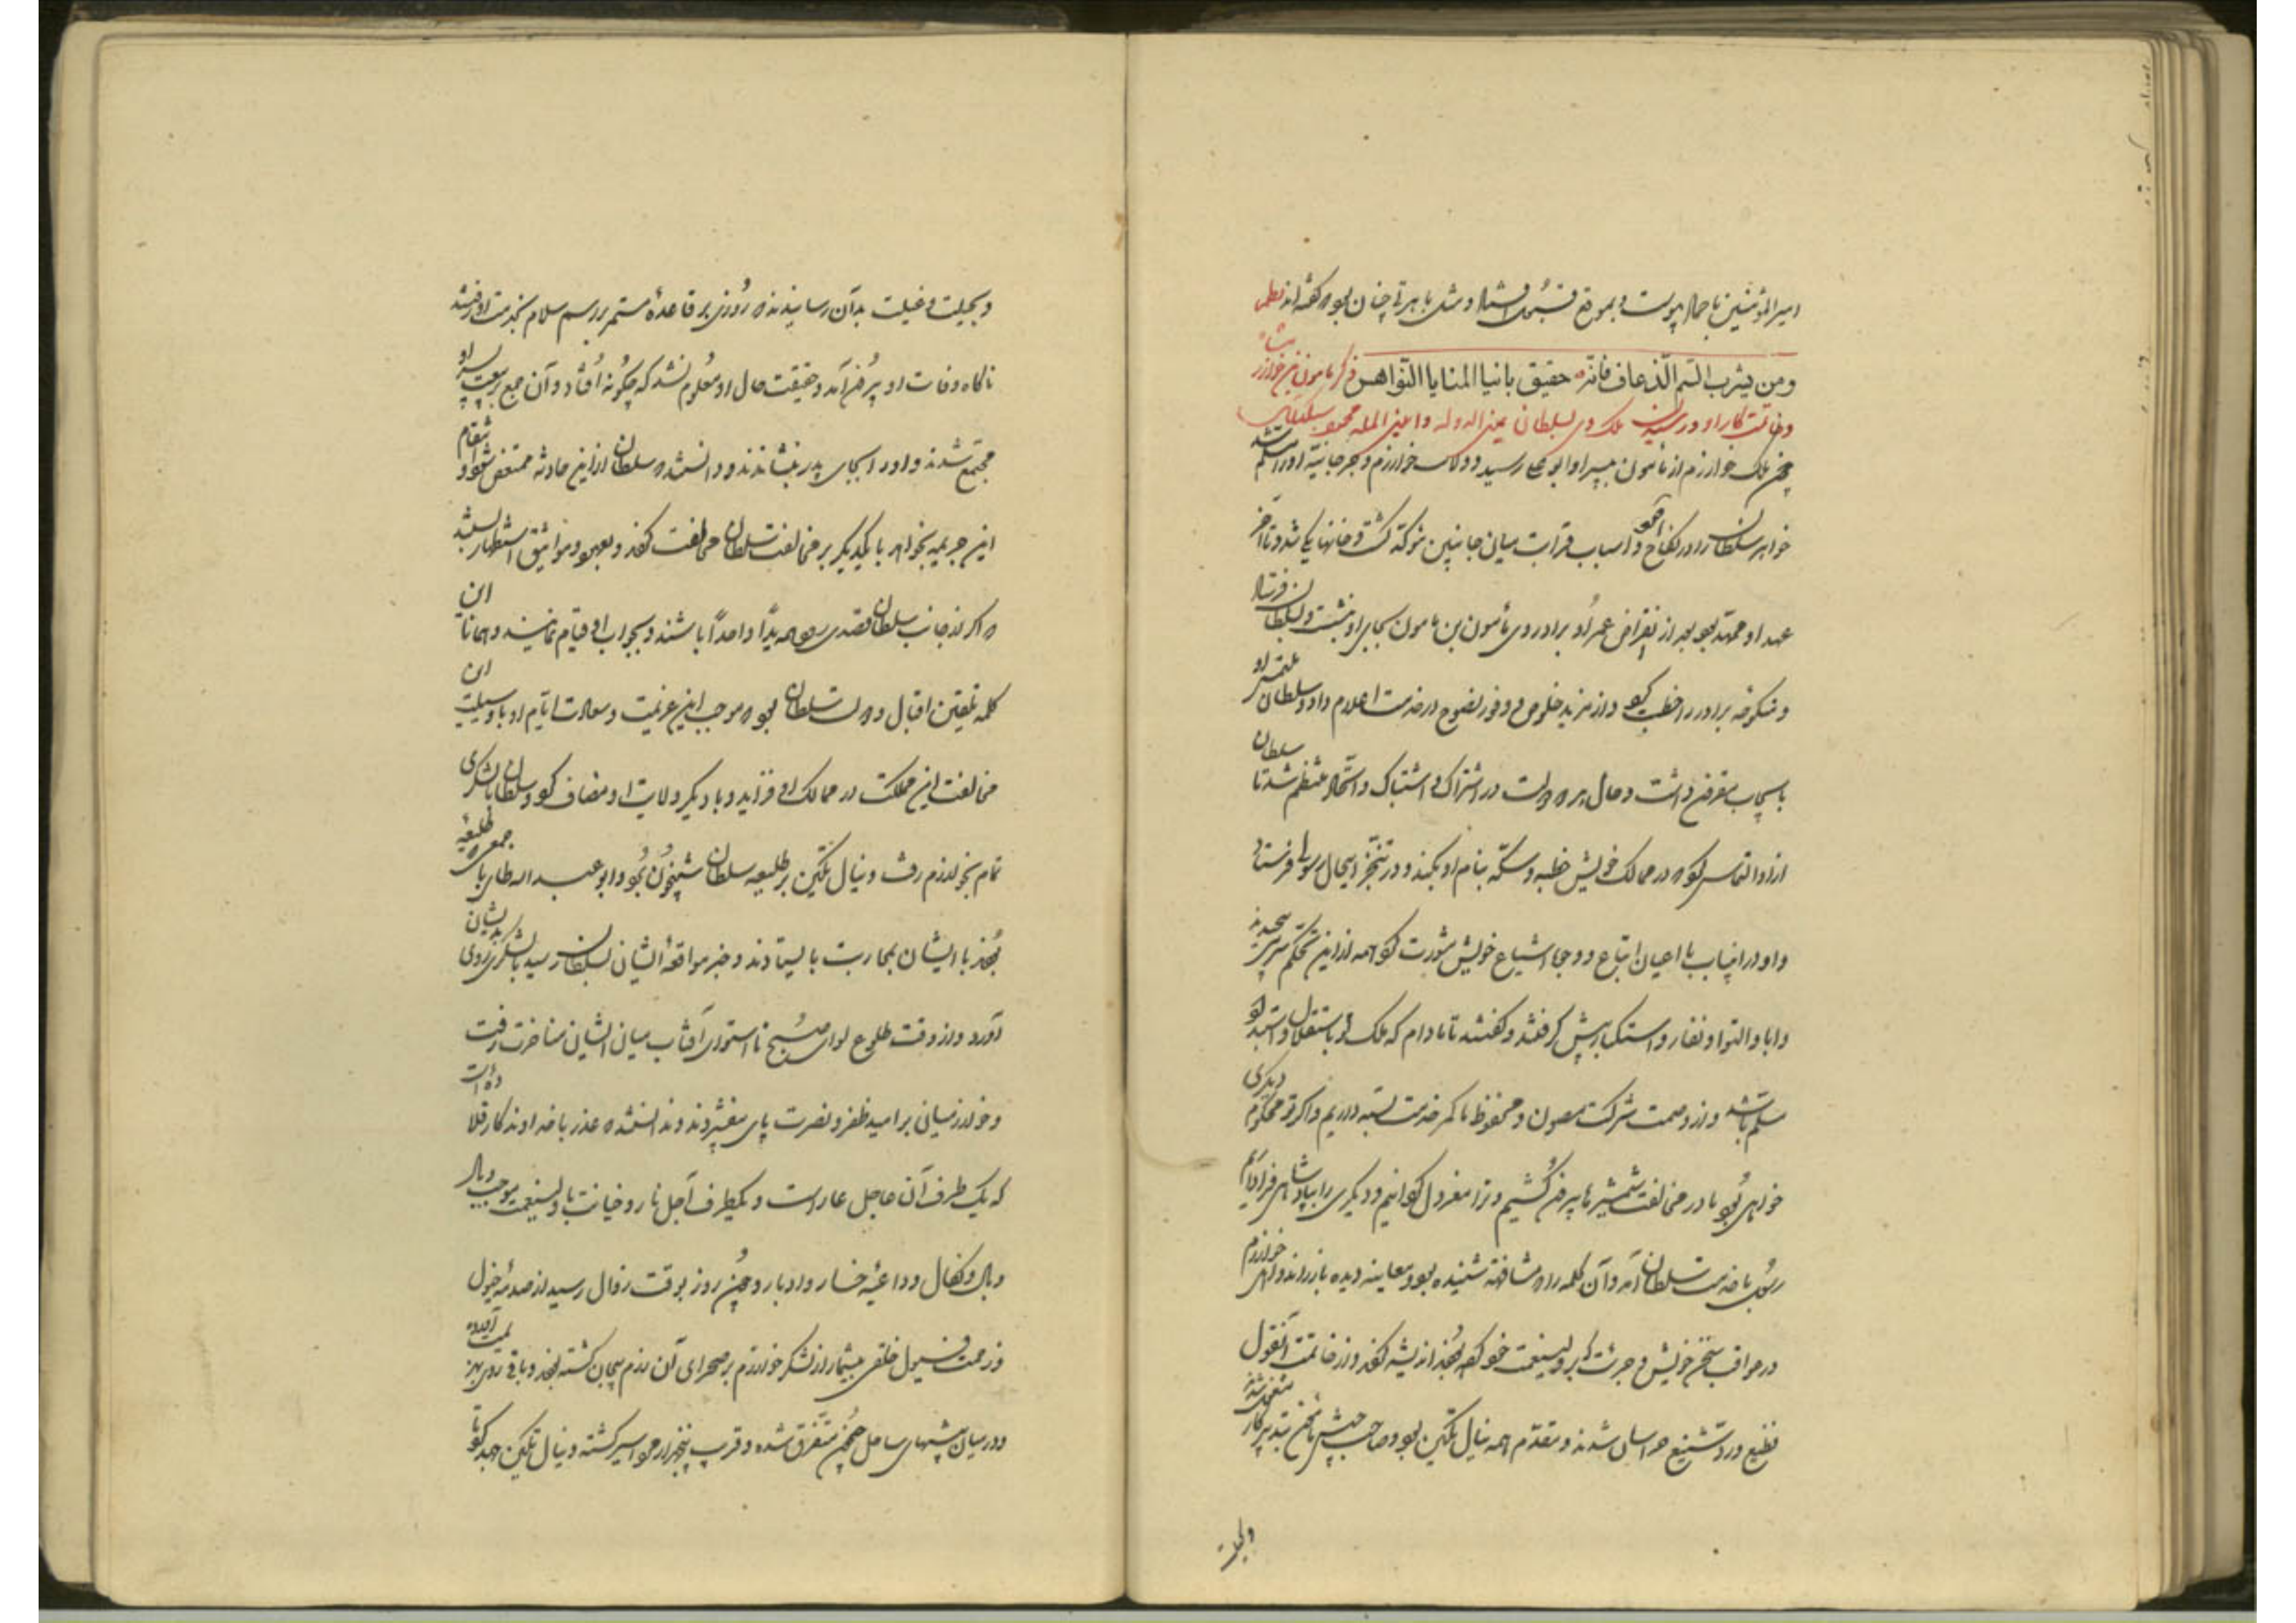 امیر المؤمنین با جمال پیوست و بموقع قبول افتاد و مثل باهر تر چنان بود که گفته‌اند نظم
ومن یشرب السم الذعاف فانه حقیق بانیاب المنایا النواهس ذکر مامون بن خوارزم شاه
وخاتمت کار او و رسیدن ملک وی بسلطان یمین الدوله و امین المله محمود سبکتکین
چون ملک خوارزم از مامون بپسر او ابو علی رسید و ولایت خوارزم و جرجانیه او را مسلم شد
خواهر سلطان را در نکاح آورد و اسباب قرابت میان جانبین موکد گشت و خانها یکی شد و تا آخر
عهد او ممهد بود بعد از انقراض عمر او برادر وی مامون بن مامون بجای او بنشست و بسلطان فرستاد
و منکوحه برادر را خطبت کرد و از مزید خلوص و وفور نصوح در خدمت اعلام داد و سلطان ملتمس او
باسعاف مقرون داشت و حال هر دو دولت در اشتراک و اشتباک و اتحاد منتظم شد تا سلطان
ازو التماس کرد که در ممالک خویش خطبه و سکه بنام او بکند و در تنجز این حال رسول فرستاد
و او در این باب با اعیان اتباع و وجوه اشیاع خویش مشورت کرد همه از این تحکم سر پیچیدند
و ابا و التوا و نفار و استکبار پیش گرفتند و گفتند تا مادام که ملک تو باستقلال و استبداد تو
مسلم باشد و از وصمت شرکت مصون و محفوظ ما کمر خدمت بسته داریم و اگر تو محکوم دیگری
خواهی بود ما در مخالفت شمشیرها بیرون کشیم و ترا معزول گردانیم و دیگری را بپادشاهی فرا داریم
رسول با خدمت سلطان آمد و آن کلمه را که مشافهة شنیده بود و معاینه دیده باز راند و اهل خوارزم
در عواقب سخن خویش و جرئت که بر ولینعمت خود کرده بودند اندیشه کردند و از خاتمت آن قول
فظیع و رد شنیع هراسان شدند و مقدم همه نیال تکین بود و صاحب جیش مامون بتدبیر کار مشغول شدند
وبحیلت
و بحیلت و غیلت بدآن رسانیدند که روزی بر قاعده مستمر بر رسم سلام بخدمت او رفتند
ناگاه وفات او بیرون آمد و حقیقت حال او معلوم نشد که چگونه افتاد و آن جمع ببیعت پسر او
مجتمع شدند و او را بجای پدر بنشاندند و دانستند که سلطان از این حادثه ممتعض شود و انتقام
این جریمه بخواهد با یکدیگر بر مخالفت سلطان محالفت کردند و بعهود و مواثیق استظهار بستند
که اگر از جانب سلطان قصدی رود همه یداً واحداً باشند و بجواب او قیام نمایند و همانا این
کلمه تلقین اقبال دولت سلطان بود که موجب این عزیمت و سعادت ایام او با وسیلت این
مخالفت این مملکت در ممالک او فزاید و با دیگر ولایت او مضاف گردد و سلطان با لشکری
تمام بخوارزم رفت و نیال تکین بر طلیعه سلطان شبیخون برد و ابو عبد الله طائی با جمعی که طلیعه
بودند با ایشان بمحاربت بایستادند و خبر مواقعه ایشان بسلطان رسید با لشکری روی بدیشان
آورد و از وقت طلوع لوای صبح تا استوای آفتاب میان ایشان مناجزت رفت
و خوارزمیان بر امید ظفر و نصرت پای بیفشردند و ندانستند که غدر با خداوندگار
که یک طرف آن عاجل عار است و یکطرف آجل نار و خیانت با ولینعمت موجب وبال
وبال و نکال و داعیه خسار و ادبار و چون روز بوقت زوال رسید از صدمه خیول
و زحمت فیول خلقی بیشمار از لشکر خوارزم بر صحرای آن رزم بیجان گشته بودند و باقی روی بهزیمت آورده
و در میان بیشهای ساحل جیحون متفرق شده و قرب پنجهزار مرد اسیر گشته و نیال تکین جهد کرد تا